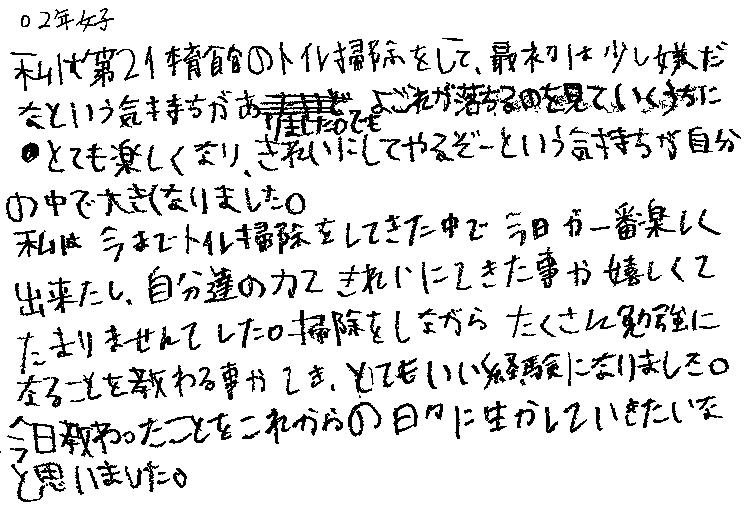 ○2年女子
私は第2体育館のトイレ掃除をして、最初は少し嫌だ
なという気持ちがありましたでもよごれが落ちるのを見ていくうちに
とても楽しくなり、きれいにしてやるぞーという気持ちが自分
の中で大きくなりました。
私は今までトイレ掃除をしてきた中で今日が一番楽しく
出来たし、自分達の力できれいにできた事が嬉しくて
たまりませんでした。掃除をしながらたくさん勉強に
なることを教わる事ができ、とてもいい経験になりました。
今日教わったことをこれからの日々に生かしていきたいな
と思いました。